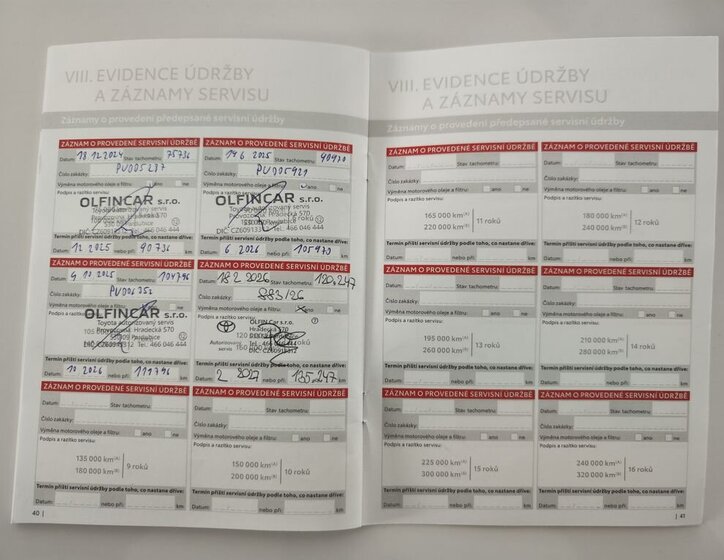 VIII. EVIDENCE ÚDRŽBY
A ZÁZNAMY SERVISU
Záznamy o provedení předepsané servisní údržby
ZÁZNAM O PROVEDENÍ SERVISNÍ ÚDRŽBĚ
Datum: 18 12 2024 Stav tachometru: 75736 km
Číslo zakázky: PU005237
Výměna motorového oleje a filtru: ano ne
Podpis a razítko servisu:
OLFINCAR s.r.o.
Toyota autorizovaný servis
Provozovna: Hradecká 570
Tel.: 466 046 444
Termín příští servisní údržby podle toho, co nastane dříve:
Datum: 12 2025 nebo při: 90 736 km
ZÁZNAM O PROVEDENÍ SERVISNÍ ÚDRŽBĚ
Datum: 19 6 2025 Stav tachometru: 90970
Číslo zakázky: PU005929
Výměna motorového oleje a filtru: ano ne
Podpis a razítko servisu:
OLFINCAR s.r.o.
Toyota autorizovaný servis
Provozovna: Hradecká 570
Tel.: 466 046 444
Termín příští servisní údržby podle toho, co nastane dříve:
Datum: 6 2026 nebo při: 105970 km
ZÁZNAM O PROVEDENÍ SERVISNÍ ÚDRŽBĚ
Datum: 9 10 2025 Stav tachometru: 104796
Číslo zakázky: PU006352
Výměna motorového oleje a filtru: ano ne
Podpis a razítko servisu:
OLFINCAR s.r.o.
Toyota autorizovaný servis
Provozovna: Hradecká 570
Tel.: 466 046 444
Termín příští servisní údržby podle toho, co nastane dříve:
Datum: 10 2026 nebo při: 119796 km
ZÁZNAM O PROVEDENÍ SERVISNÍ ÚDRŽBĚ
Datum: 18 2 2026 Stav tachometru: 120.247
Číslo zakázky: 883/26
Výměna motorového oleje a filtru: ano ne
Podpis a razítko servisu:
OLFIN Car s.r.o.
Hradecká 570
Autorizovaný servis
Tel.: 466 046 444
Termín příští servisní údržby podle toho, co nastane dříve:
Datum: 2 2027 nebo při: 135.247 km
ZÁZNAM O PROVEDENÍ SERVISNÍ ÚDRŽBĚ
Datum: Stav tachometru: km
Číslo zakázky:
Výměna motorového oleje a filtru: ano ne
Podpis a razítko servisu:
135 000 km(A)
180 000 km(B)
9 roků
Termín příští servisní údržby podle toho, co nastane dříve:
Datum: nebo při: km
ZÁZNAM O PROVEDENÍ SERVISNÍ ÚDRŽBĚ
Datum: Stav tachometru: km
Číslo zakázky:
Výměna motorového oleje a filtru: ano ne
Podpis a razítko servisu:
150 000 km(A)
200 000 km(B)
10 roků
Termín příští servisní údržby podle toho, co nastane dříve:
Datum: nebo při: km
40 |
VIII. EVIDENCE ÚDRŽBY
A ZÁZNAMY SERVISU
Záznamy o provedení předepsané servisní údržby
ZÁZNAM O PROVEDENÍ SERVISNÍ ÚDRŽBĚ
Datum: Stav tachometru: km
Číslo zakázky:
Výměna motorového oleje a filtru: ano ne
Podpis a razítko servisu:
165 000 km(A)
220 000 km(B)
11 roků
Termín příští servisní údržby podle toho, co nastane dříve:
Datum: nebo při: km
ZÁZNAM O PROVEDENÍ SERVISNÍ ÚDRŽBĚ
Datum: Stav tachometru: km
Číslo zakázky:
Výměna motorového oleje a filtru: ano ne
Podpis a razítko servisu:
180 000 km(A)
240 000 km(B)
12 roků
Termín příští servisní údržby podle toho, co nastane dříve:
Datum: nebo při: km
ZÁZNAM O PROVEDENÍ SERVISNÍ ÚDRŽBĚ
Datum: Stav tachometru: km
Číslo zakázky:
Výměna motorového oleje a filtru: ano ne
Podpis a razítko servisu:
195 000 km(A)
260 000 km(B)
13 roků
Termín příští servisní údržby podle toho, co nastane dříve:
Datum: nebo při: km
ZÁZNAM O PROVEDENÍ SERVISNÍ ÚDRŽBĚ
Datum: Stav tachometru: km
Číslo zakázky:
Výměna motorového oleje a filtru: ano ne
Podpis a razítko servisu:
210 000 km(A)
280 000 km(B)
14 roků
Termín příští servisní údržby podle toho, co nastane dříve:
Datum: nebo při: km
ZÁZNAM O PROVEDENÍ SERVISNÍ ÚDRŽBĚ
Datum: Stav tachometru: km
Číslo zakázky:
Výměna motorového oleje a filtru: ano ne
Podpis a razítko servisu:
225 000 km(A)
300 000 km(B)
15 roků
Termín příští servisní údržby podle toho, co nastane dříve:
Datum: nebo při: km
ZÁZNAM O PROVEDENÍ SERVISNÍ ÚDRŽBĚ
Datum: Stav tachometru: km
Číslo zakázky:
Výměna motorového oleje a filtru: ano ne
Podpis a razítko servisu:
240 000 km(A)
320 000 km(B)
16 roků
Termín příští servisní údržby podle toho, co nastane dříve:
Datum: nebo při: km
| 41